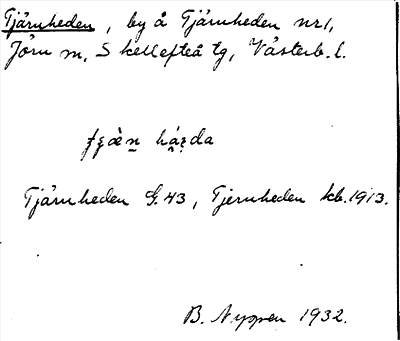 Tjärnheden, by å Tjärnheden nr1,
Jörn sn, Skellefteå tg, Västerb. l.
há̤ṛda
Tjärnheden G. 43, Tjernheden kb. 1913.
B. Nyppen 1932.